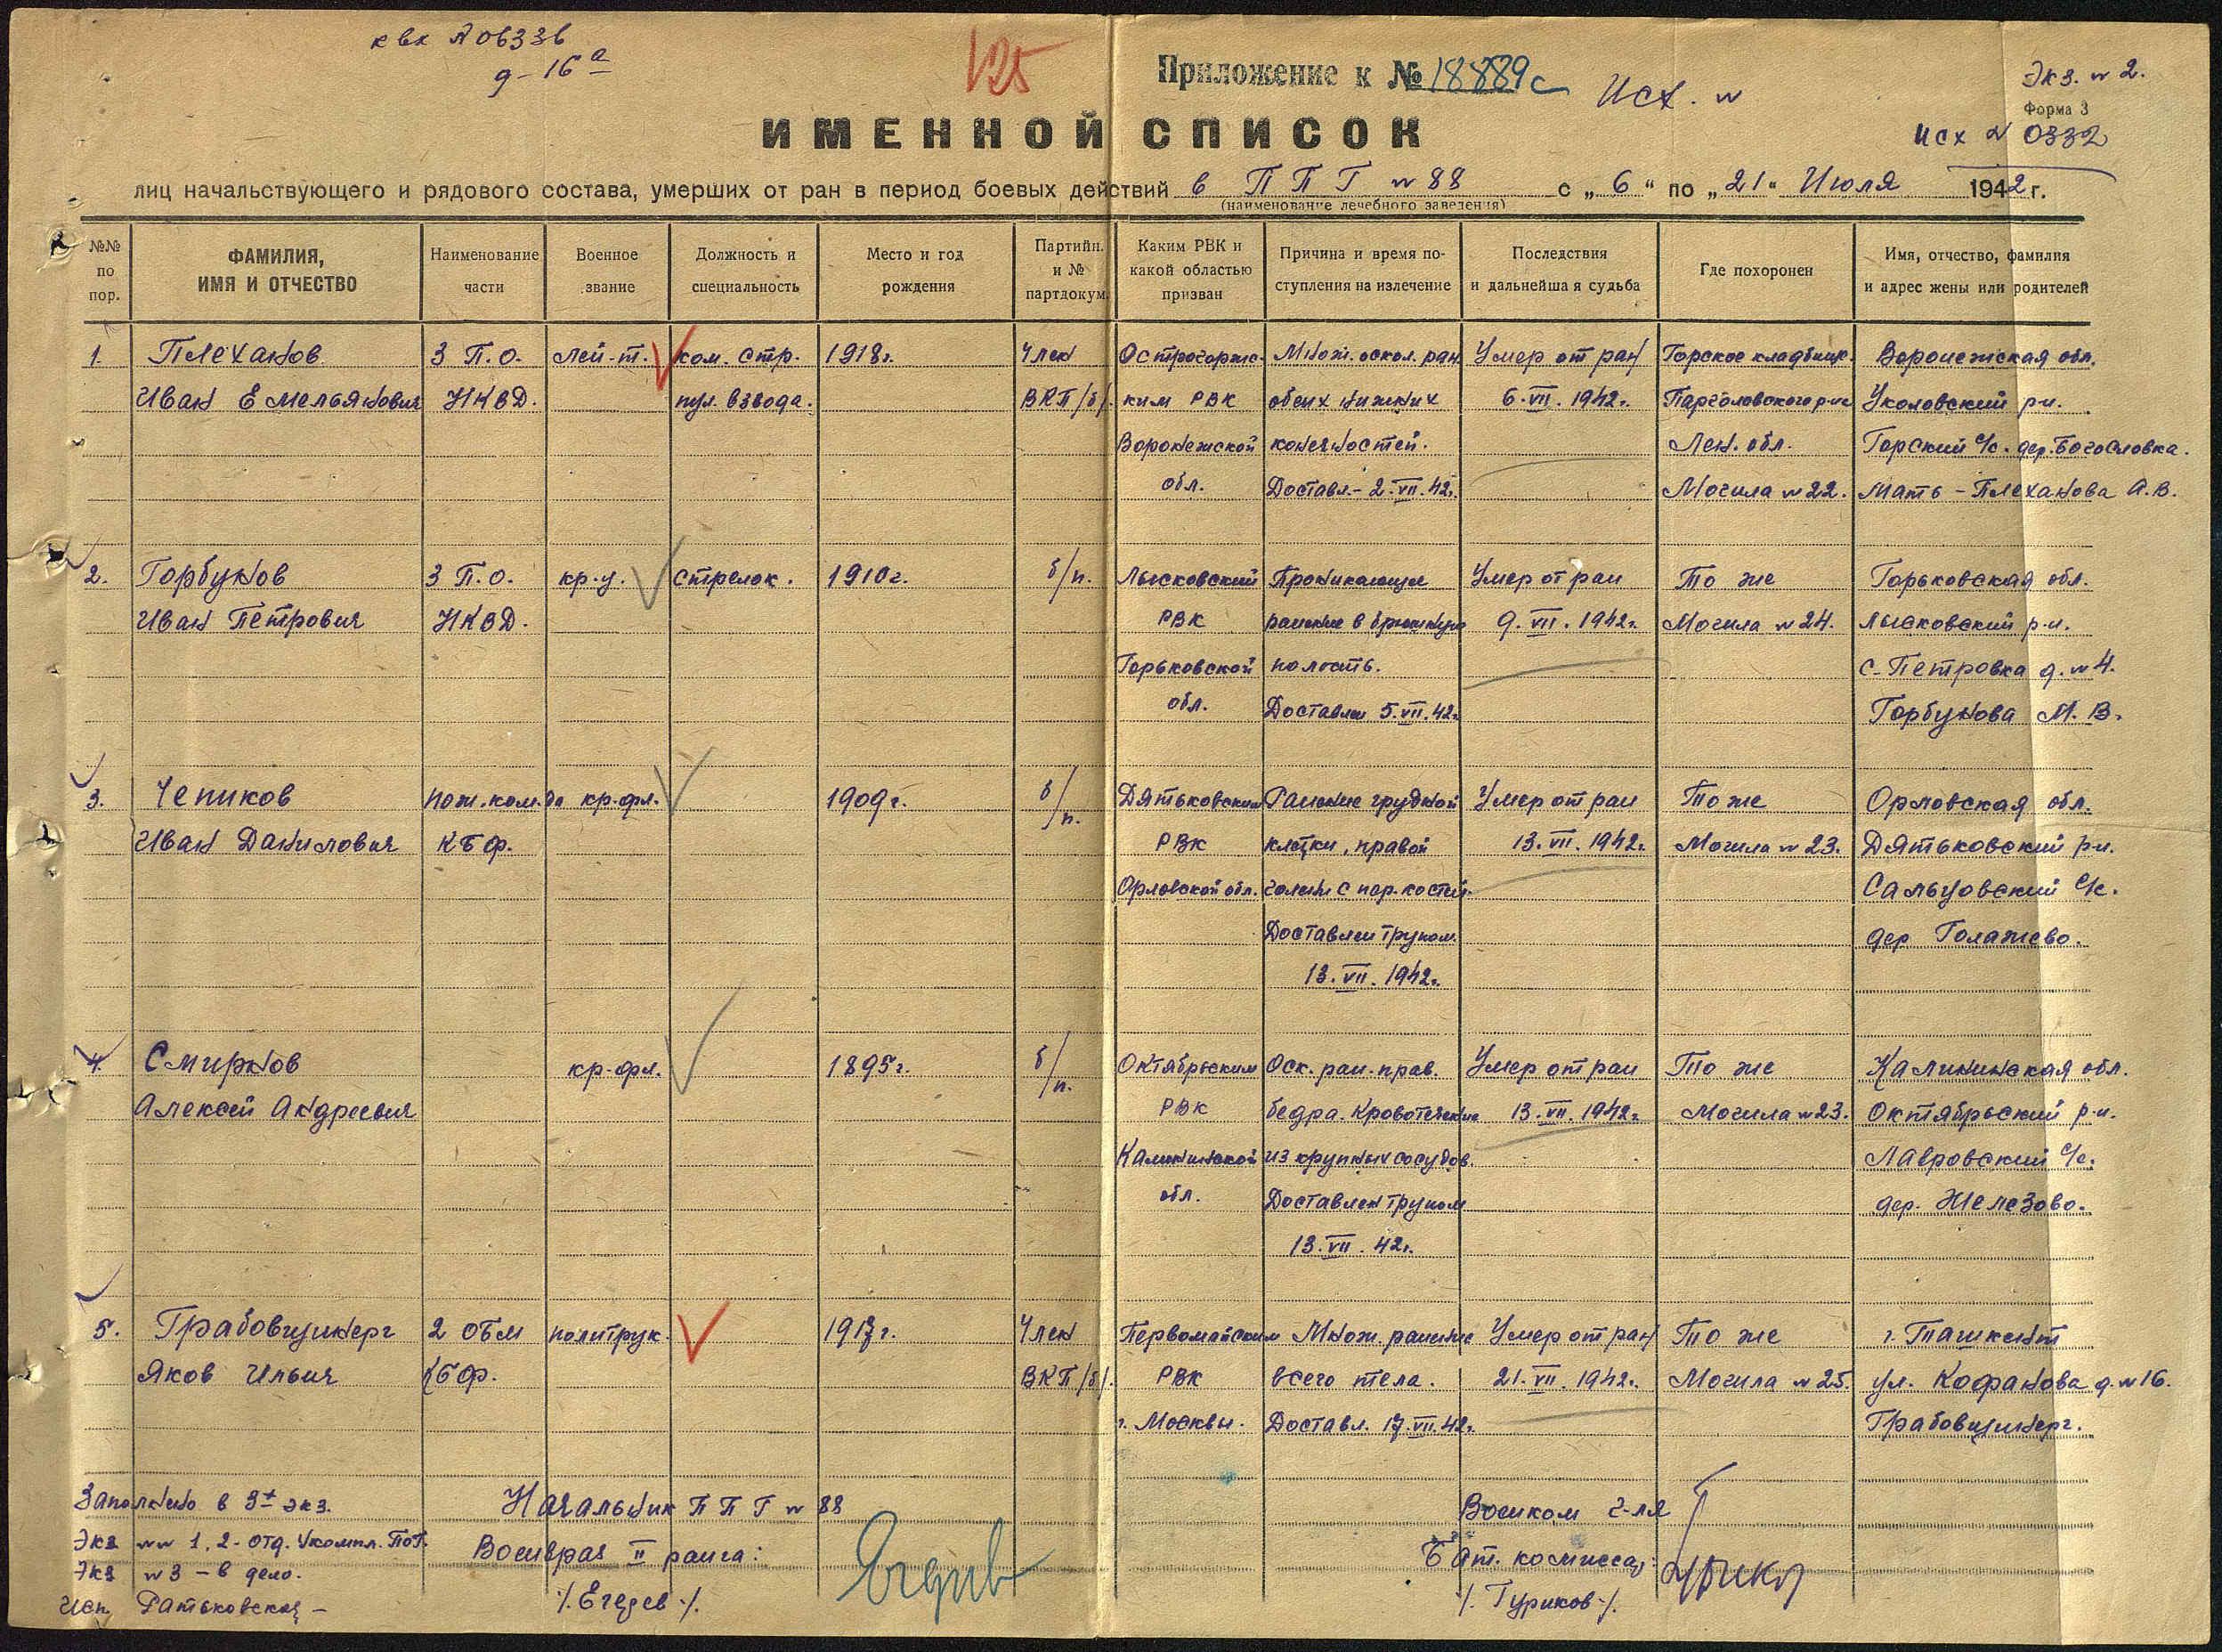 к вх № 06336
д-16а
125
Приложение к № 18889с
Исх. №
Экз. № 2.
Форма 3
Исх № 0332
ИМЕННОЙ СПИСОК
лиц начальствующего и рядового состава, умерших от ран в период боевых действий в ППГ № 88 с „6“ по „21“ Июля 1942 г.
(наименование лечебного заведения)
№№ по пор.
ФАМИЛИЯ, ИМЯ И ОТЧЕСТВО
Наименование части
Военное звание
Должность и специальность
Место и год рождения
Партийн. и № партдокум.
Каким РВК и какой областью призван
Причина и время поступления на излечение
Последствия и дальнейшая судьба
Где похоронен
Имя, отчество, фамилия и адрес жены или родителей
1. Плеханов 3 П.О. лей-т. ком. стр. 1918г. Член Острогожс- Множ. оскол. ран. Умер от ран Горское кладбище. Воронежская обл.
Иван Емельянович НКВД. пул. взвода. ВКП/б/. ким РВК обеих нижних 6.VII.1942г. Парголовского р-на Уколовский р-н.
Воронежской конечностей. Лен. обл. Горский с/с. дер. Богословка.
обл. Доставл.- 2.VII.42г. Могила № 22. Мать - Плеханова А.В.
2. Горбунов 3 П.О. кр-ц. стрелок. 1910г. б/п. Лысковский Проникающее Умер от ран То же Горьковская обл.
Иван Петрович НКВД. РВК ранение в брюшную 9.VII.1942г. Могила № 24. Лысковский р-н.
Горьковской полость. с. Петровка д. № 4.
обл. Доставлен 5.VII.42г. Горбунова М.В.
3. Чепиков пож. ком-да кр-фл. 1909г. б/п. Дятьковским Ранение грудной Умер от ран То же Орловская обл.
Иван Данилович КБФ. РВК клетки, правой 13.VII.1942г. Могила № 23. Дятьковский р-н.
Орловской обл. голени с пер. костей. Сальцовский с/с.
Доставлен трупом. дер Голажево.
13.VII.1942г.
4. Смирнов кр-фл. 1895г. б/п. Октябрьским Оск. ран. прав. Умер от ран То же Калининская обл.
Алексей Андреевич РВК бедра. Кровотечение 13.VII.1942г. Могила № 23. Октябрьский р-н.
Калининской из крупных сосудов. Лавровский с/с.
обл. Доставлен трупом дер. Железово.
13.VII.42г.
5. Грабовщинерг 2 ОБМ политрук. 1917г. Член Первомайским Множ. ранение Умер от ран То же г. Ташкент
Яков Ильич КБФ. ВКП/б/. РВК всего тела. 21.VII.1942г. Могила № 25. ул. Кафанова д. № 16.
г. Москвы. Доставл. 17.VII.42г. Грабовщинерг.
Заполнено в 3х экз. Начальник ППГ № 88 Военком г-ля
Экз №№ 1,2-отд. Укомпл. Военврач II ранга: Бат. комиссар:
Экз № 3 - в дело. /.Егезев./ /.Туриков./
Исп. Ратьковская -